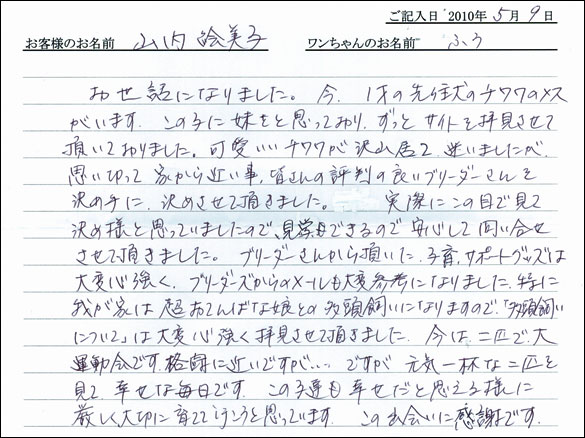 ご記入日 2010年 5月 9日
お客様のお名前 山内 絵美子 ワンちゃんのお名前 ふう
お世話になりました。今、1才の先住犬のチワワのメス
がいます。この子に妹をと思っており、ずっとサイトを拝見させて
頂いておりました。可愛いチワワが沢山居て、迷いましたが、
思い切って家から近い事、皆さんの評判の良いブリーダーさんを
決め手に、決めさせて頂きました。 実際にこの目で見て
決め様と思っていましたので、見学もできるので安心して問い合せ
させて頂きました。ブリーダーさんから頂いた、子育、サポートグッズは
大変心強く、ブリーダーズからのメールも大変参考になりました。特に
我が家は超おてんばな娘との多頭飼いになりますので、「多頭飼い
について」は大変心強く拝見させて頂きました。今は二匹で大
運動会です。格闘に近いですが…。ですが元気一杯な二匹を
見て、幸せな毎日です。この子達も幸せだと思える様に
厳しく大切に育てて行こうと思っています。この出会いに感謝です。